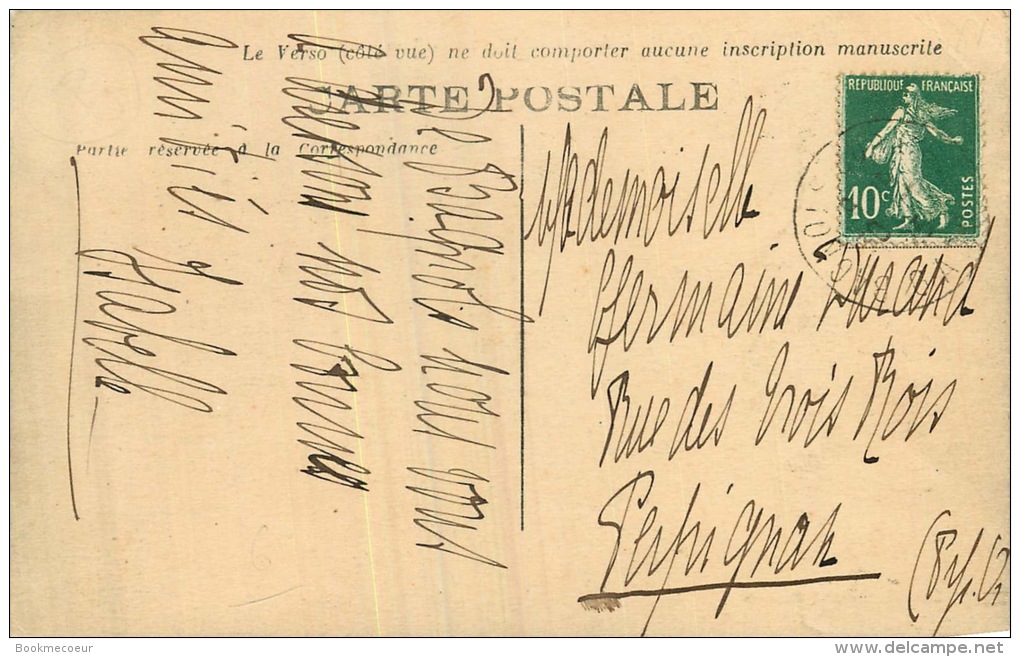 Le Verso (côté vue) ne doit comporter aucune inscription manuscrite
CARTE POSTALE
Partie réservée à la Correspondance
RÉPUBLIQUE FRANÇAISE
10c
POSTES
De nous vous
nos bonnes
amitiés
Isabelle
Mademoiselle
Germaine Durand
Rue des Trois Rois
Perpignan
(Py. O
Bookmecoeur
delcampe.net